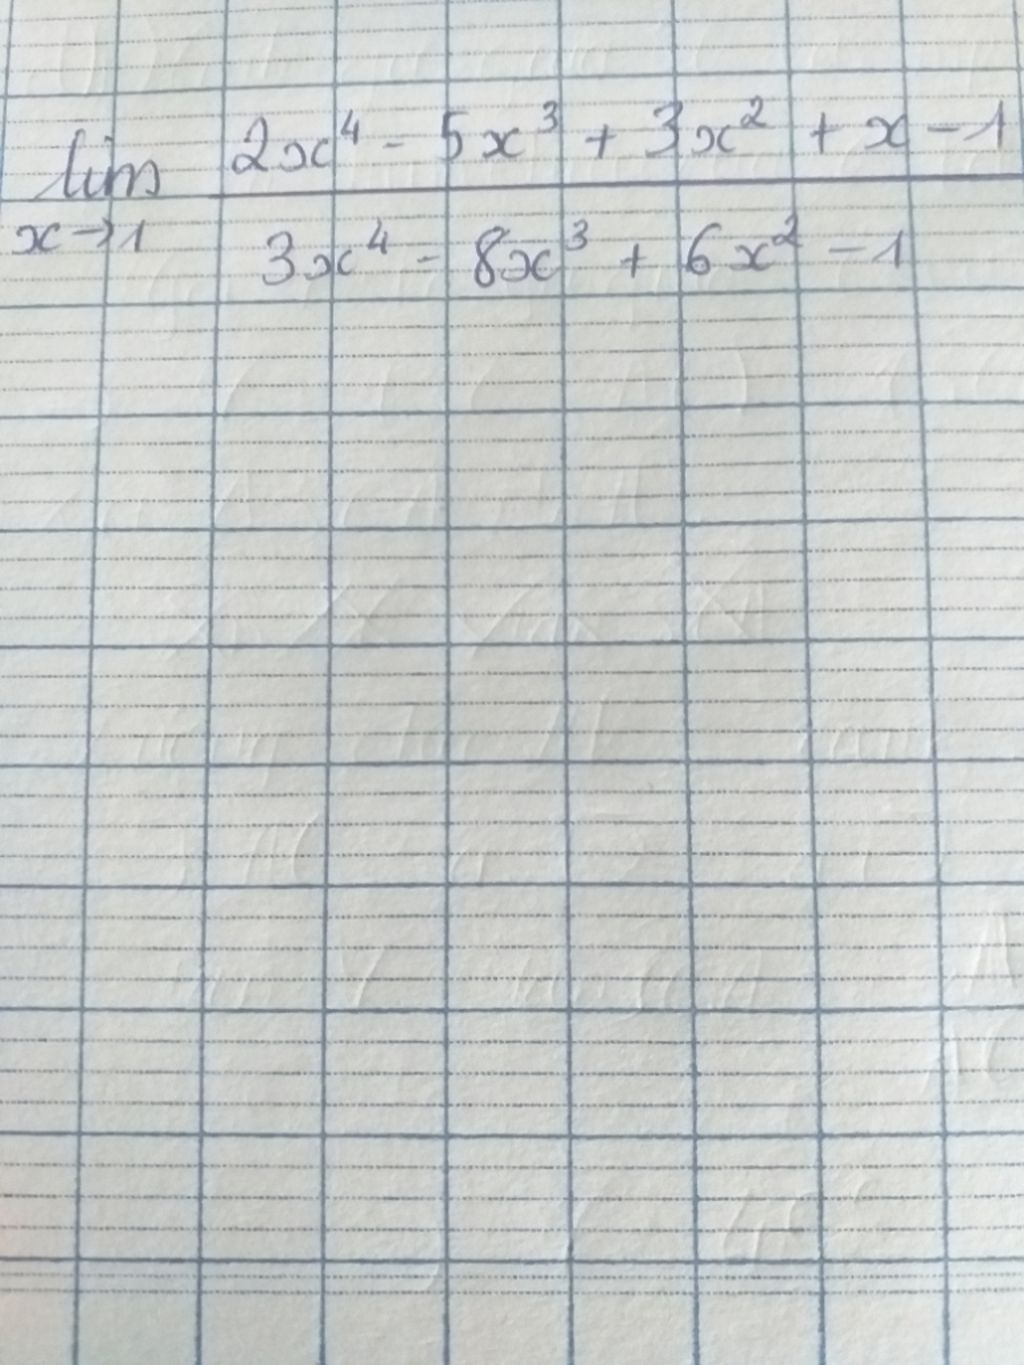 lim 2x⁴ - 5x³ + 3x² + x - 1
x→1 3x⁴ - 8x³ + 6x² - 1